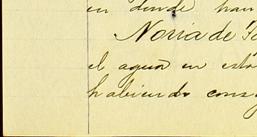 en donde han
Noria de
el agua en esta
habiendo cons